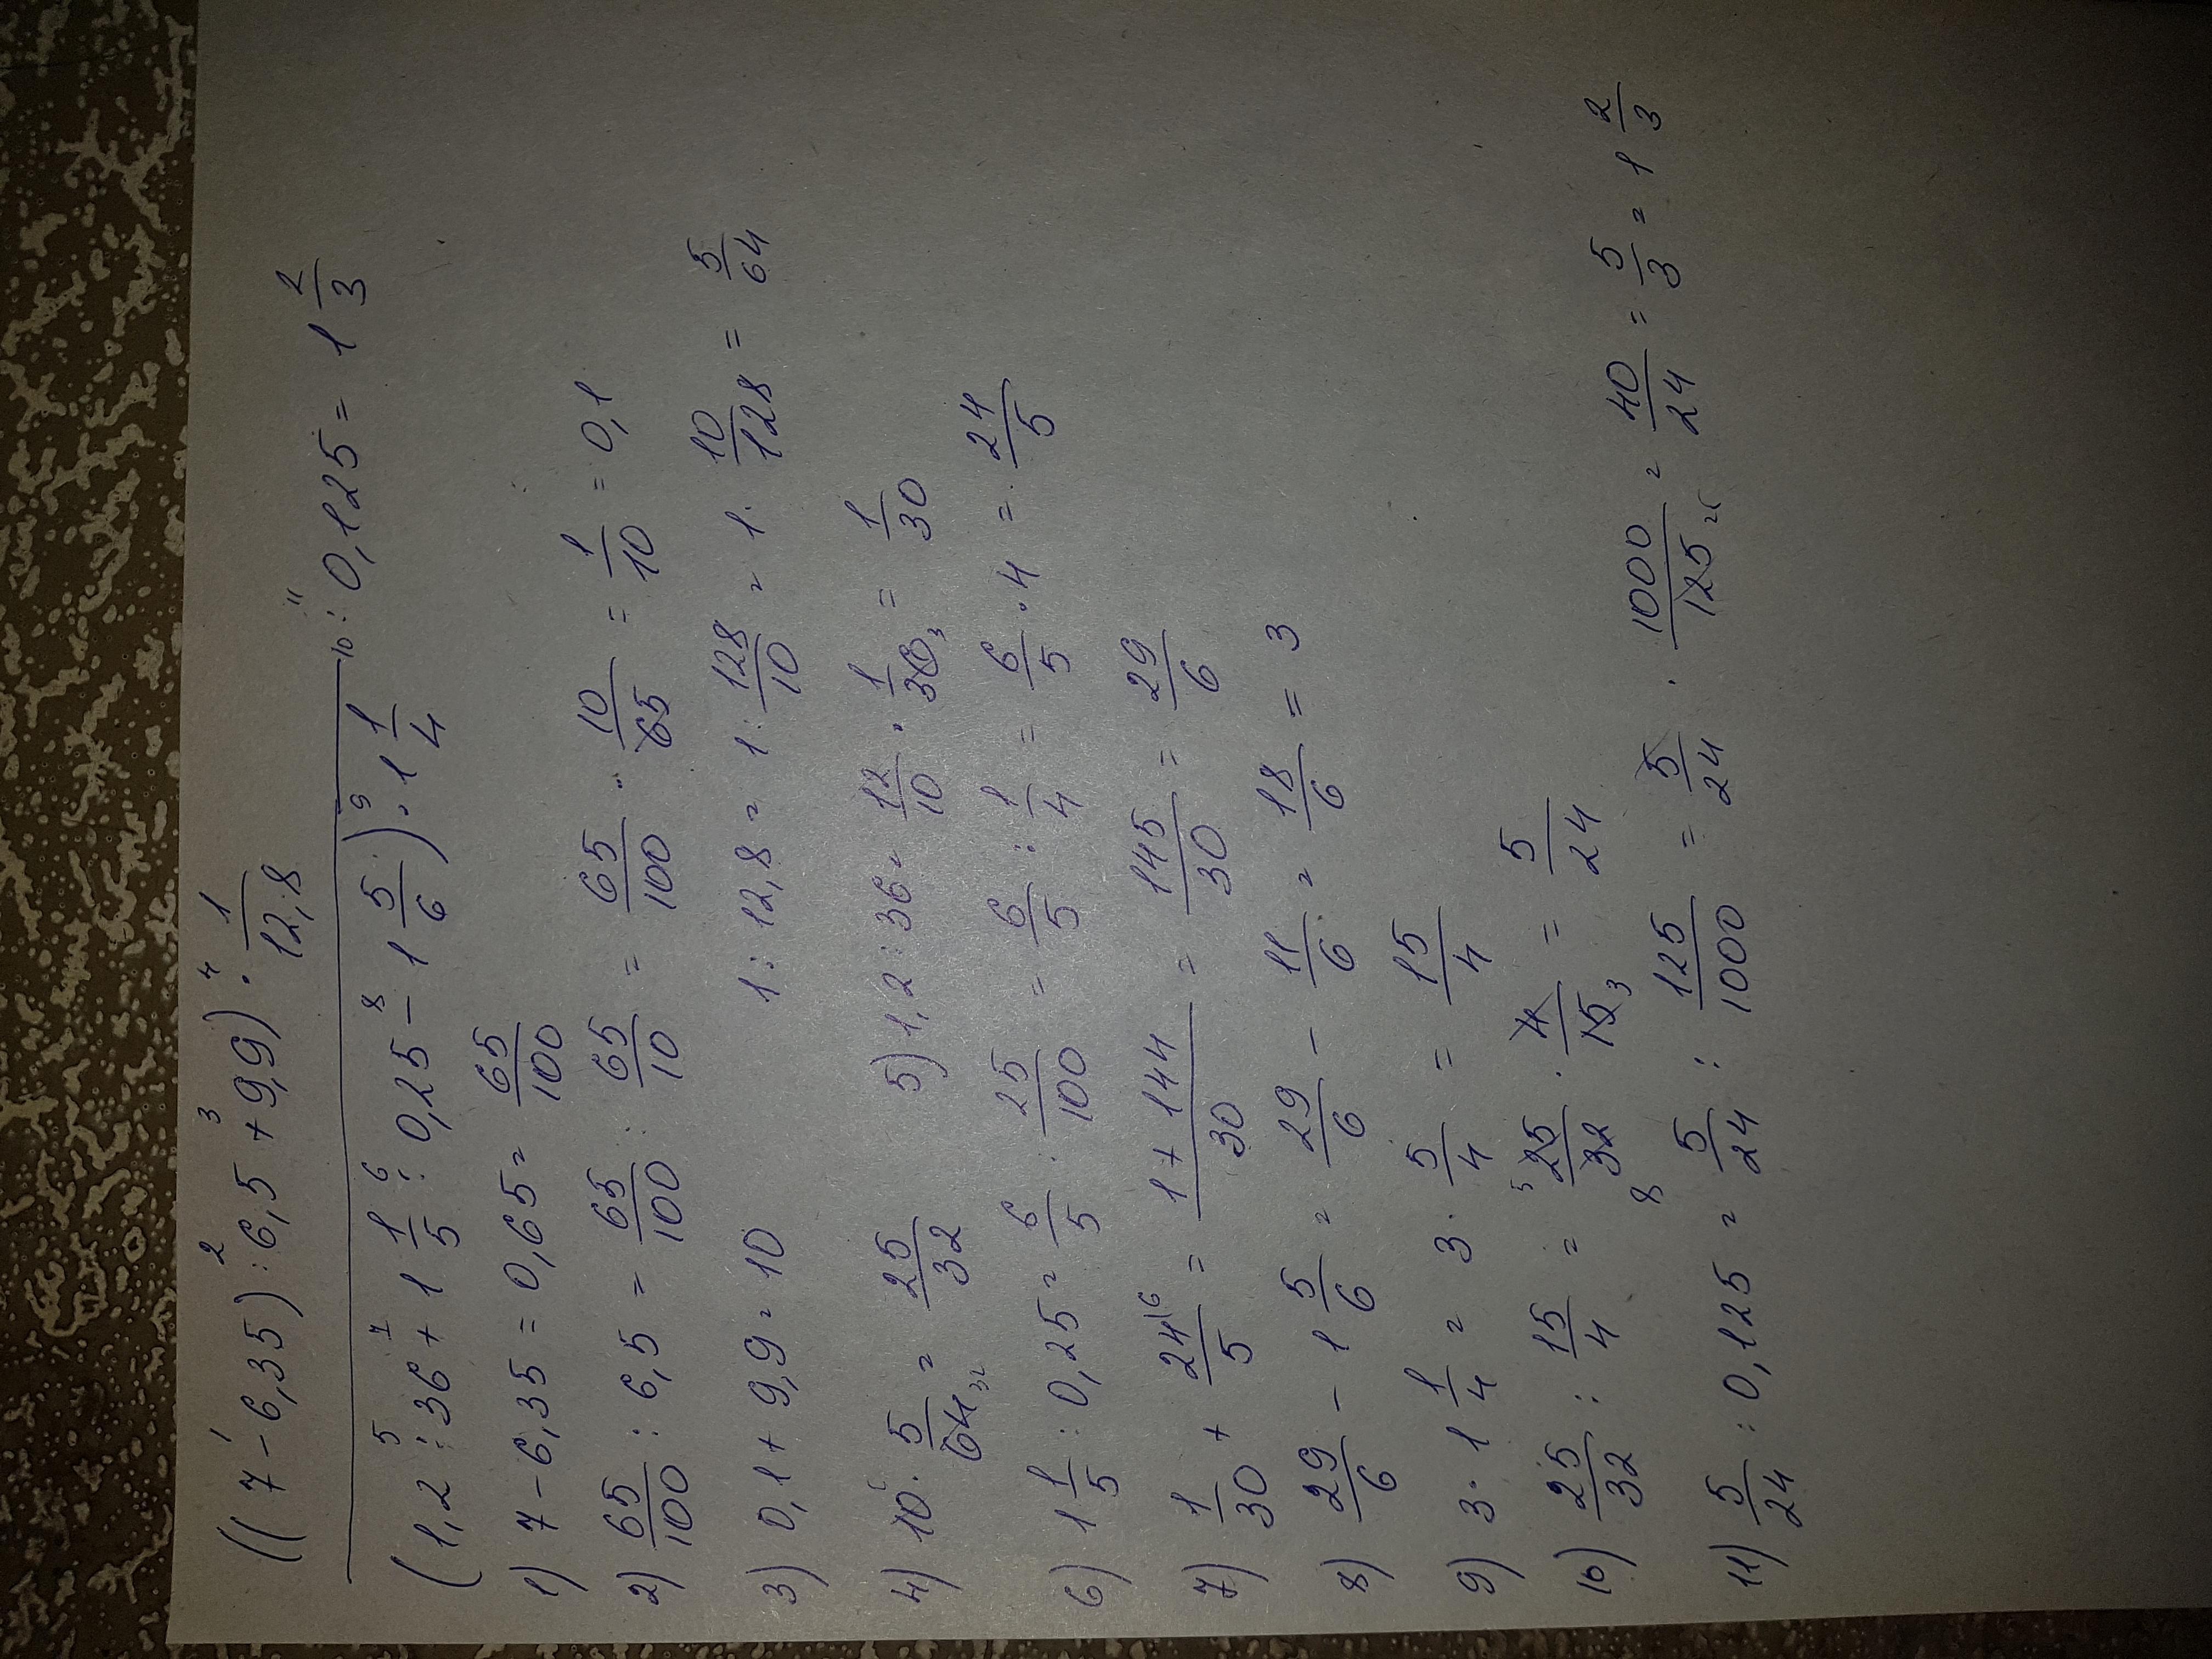 ((7 - 6,35) : 6,5 + 9,9) · 1/12,8
(1,2 : 36 + 1 1/5 : 0,25 - 1 5/6) · 1 1/4 : 0,125 = 1 2/3
1) 7 - 6,35 = 0,65 = 65/100
2) 65/100 : 6,5 = 65/100 : 65/10 = 65/100 · 10/65 = 1/10 = 0,1
3) 0,1 + 9,9 = 10   1 : 12,8 = 1 : 128/10 = 1 · 10/128 = 5/64
4) 10 · 5/64 = 25/32   5) 1,2 : 36 = 12/10 · 1/36 = 1/30
6) 1 1/5 : 0,25 = 6/5 : 25/100 = 6/5 : 1/4 = 6/5 · 4 = 24/5
7) 1/30 + 24/5 = 1 + 144/30 = 145/30 = 29/6
8) 29/6 - 1 5/6 = 29/6 - 11/6 = 18/6 = 3
9) 3 · 1 1/4 = 3 · 5/4 = 15/4
10) 25/32 : 15/4 = 25/32 · 4/15 = 5/24
11) 5/24 : 0,125 = 5/24 : 125/1000 = 5/24 · 1000/125 = 40/24 = 5/3 = 1 2/3